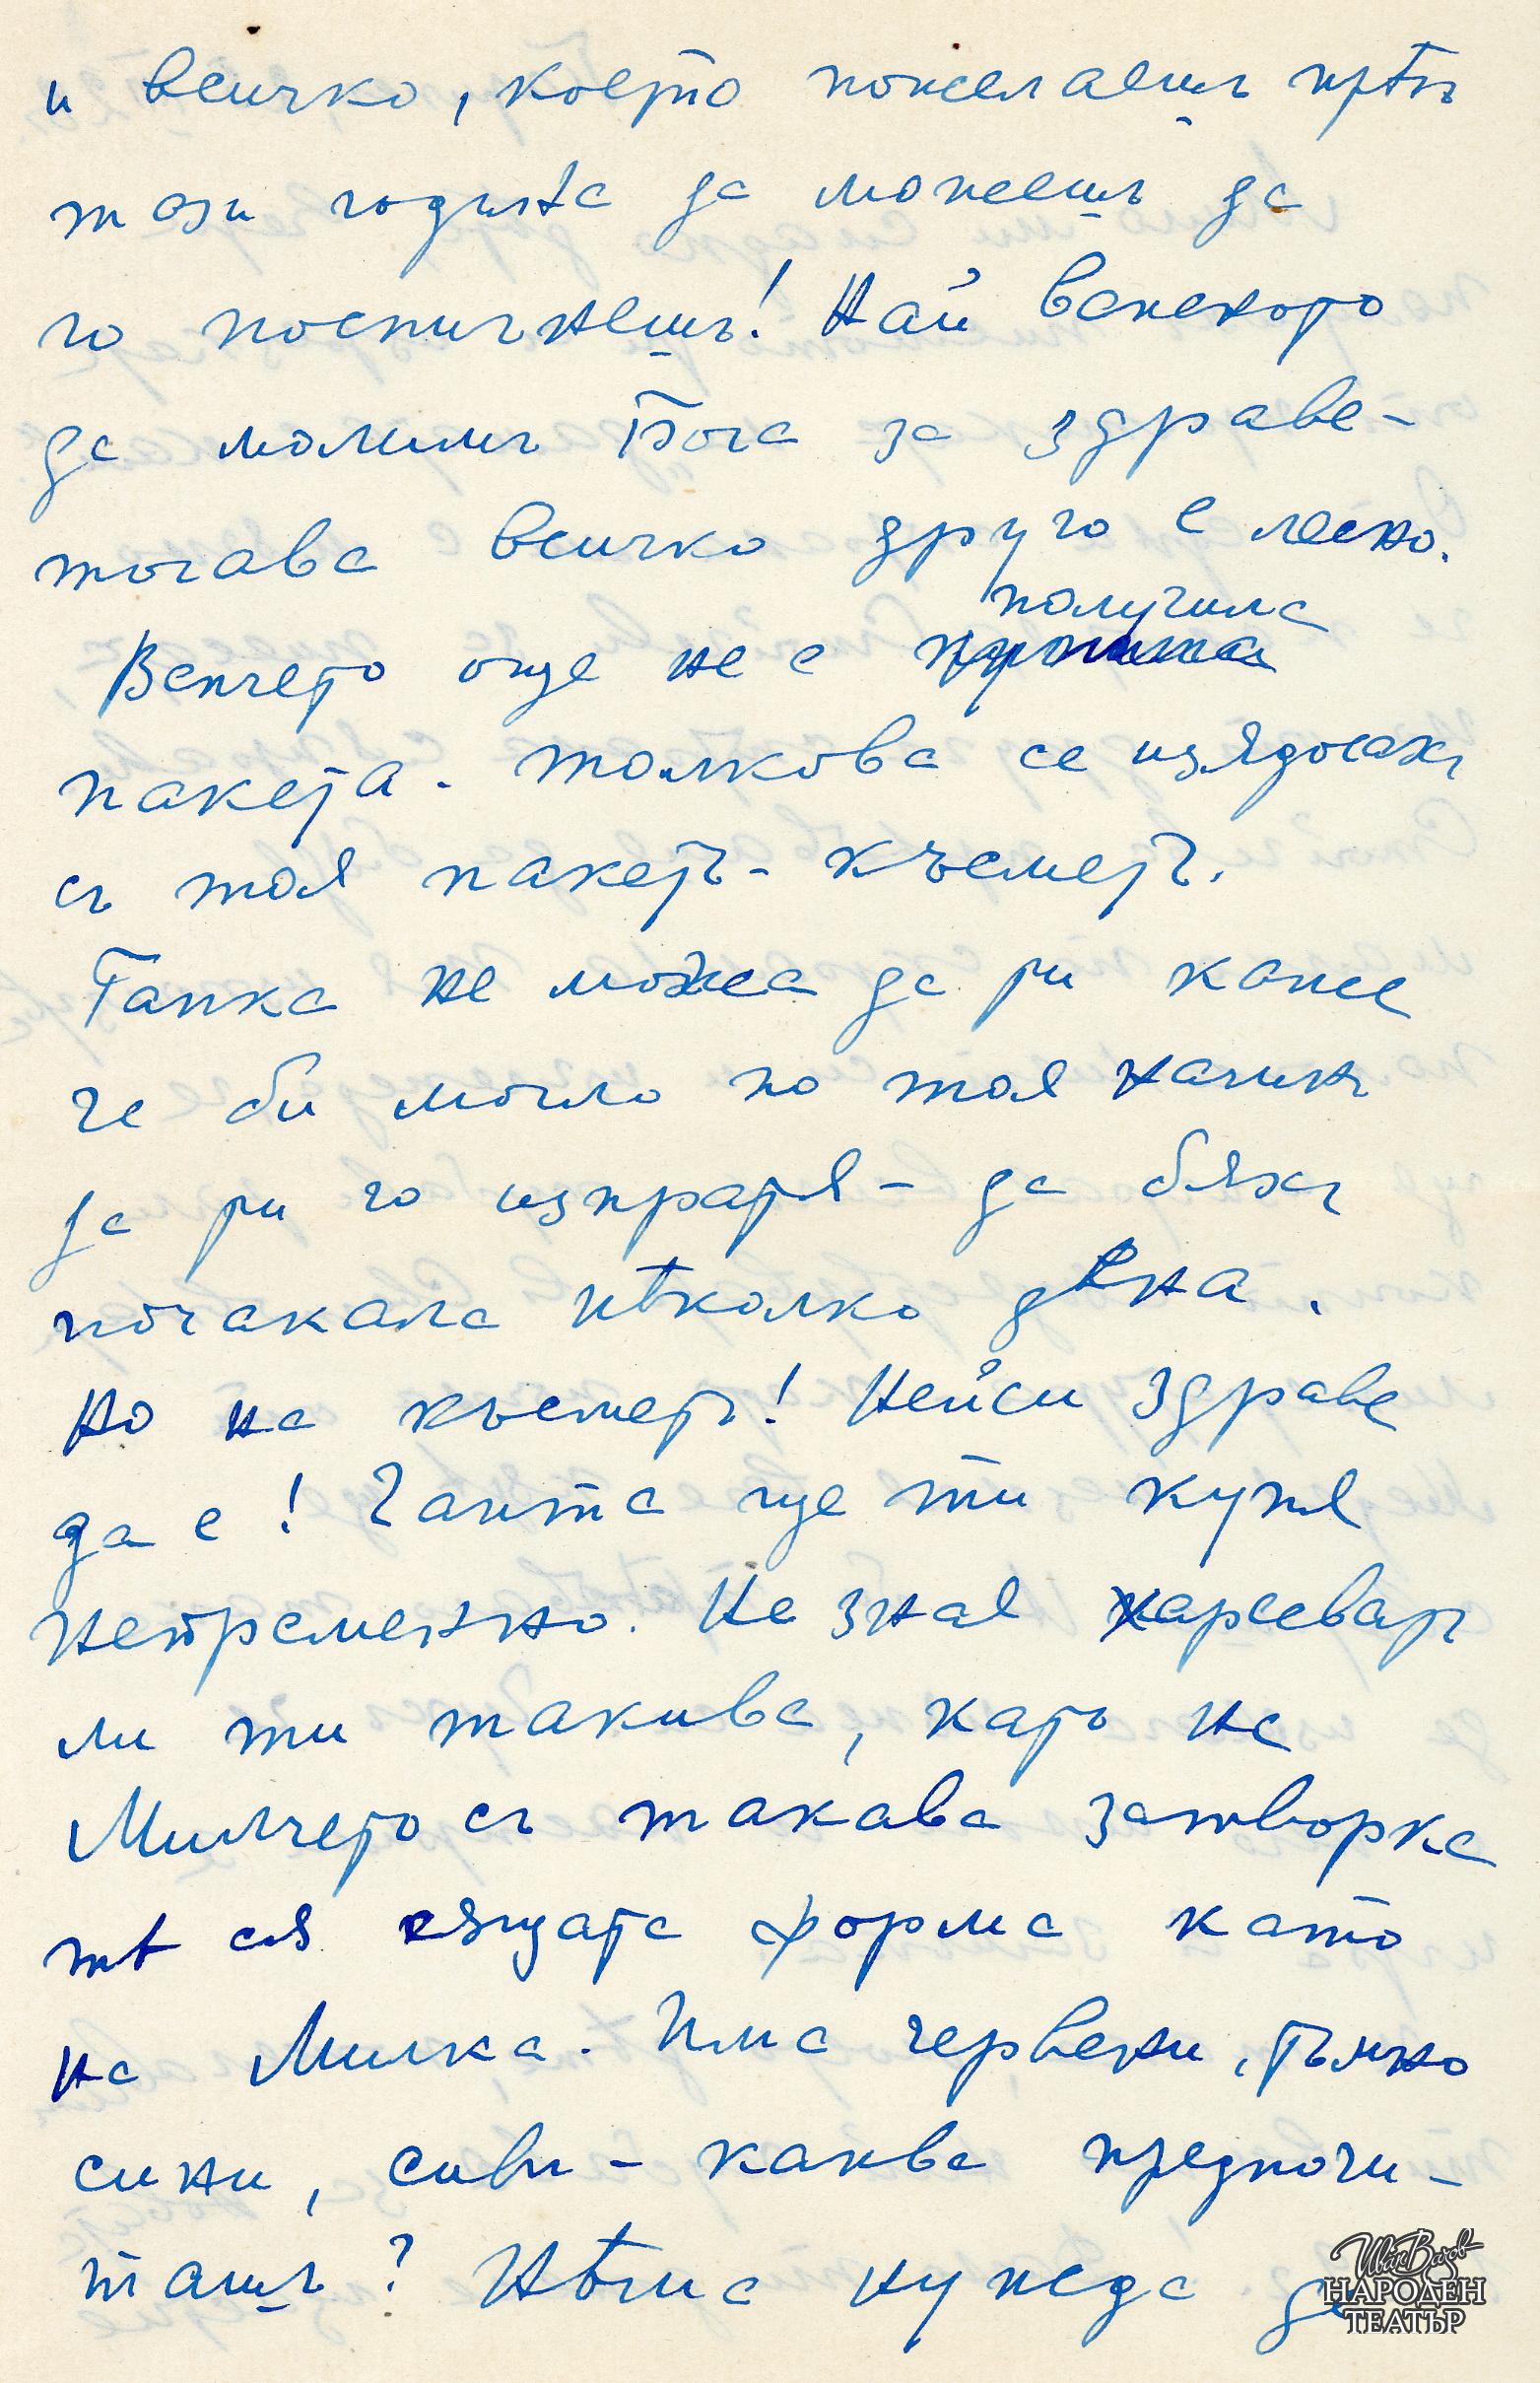 и всичко, което пожелаешъ прѣзъ
тази година да можешъ да
го постигнешъ! Най васенекоро
да молимъ Бога за здраве-
тогава всичко друго е лесно.
получила
Венчето още не е
пакета. Толкова се изядосахъ
съ тоя пакетъ - късметъ.
Гапка не можеа да ти каже
че би могло по тоя начинъ
да ти го изпратя - да бяхъ
почакала нѣколко дена.
Но на късметъ! Нейси здраве
да е! Чанта ще ти купя
непременно. Не зная харесватъ
ли ти такива, като на
Милчето съ такава затворка
тѣ сѫ същата форма като
на Милка. Има червени, тъмно
сини, сиви - каква предпочи-
ташъ? Нѣма нужда да
Иван Вазов
НАРОДЕН
ТЕАТЪР